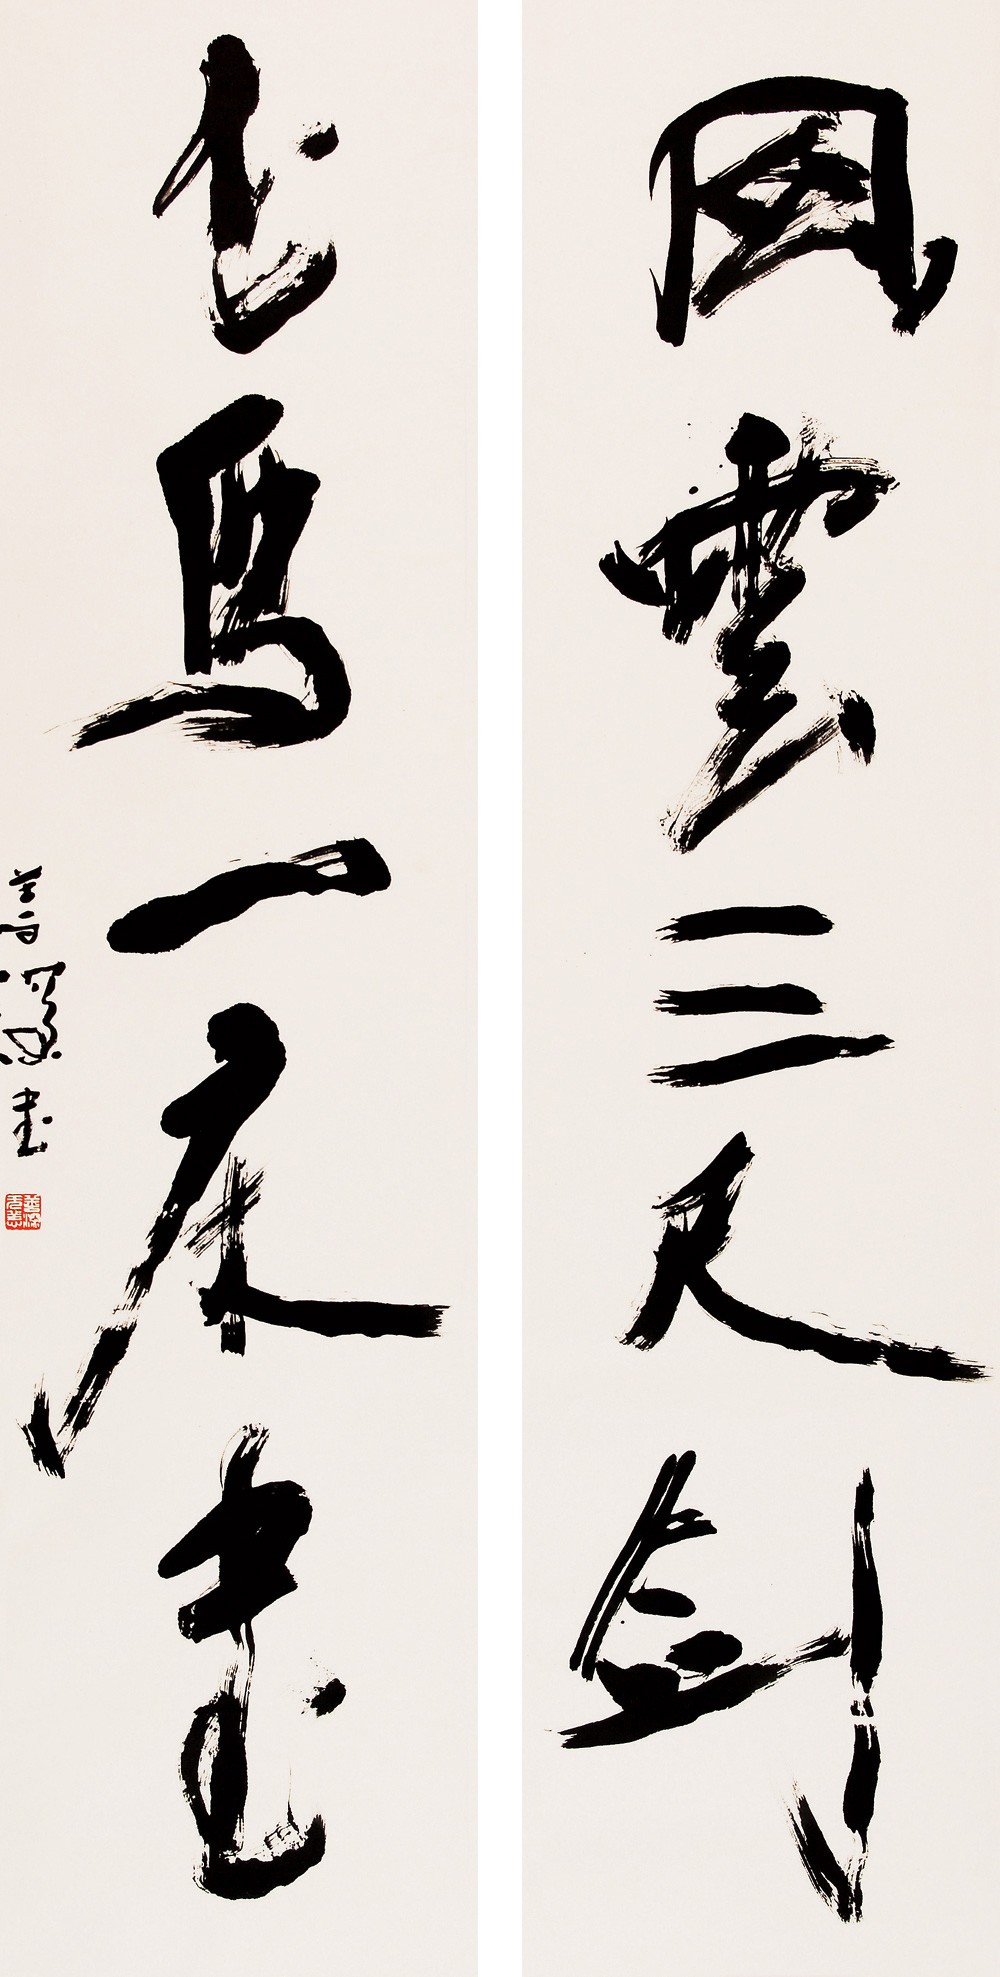 風雲三尺劍
花鳥一床書
善深書